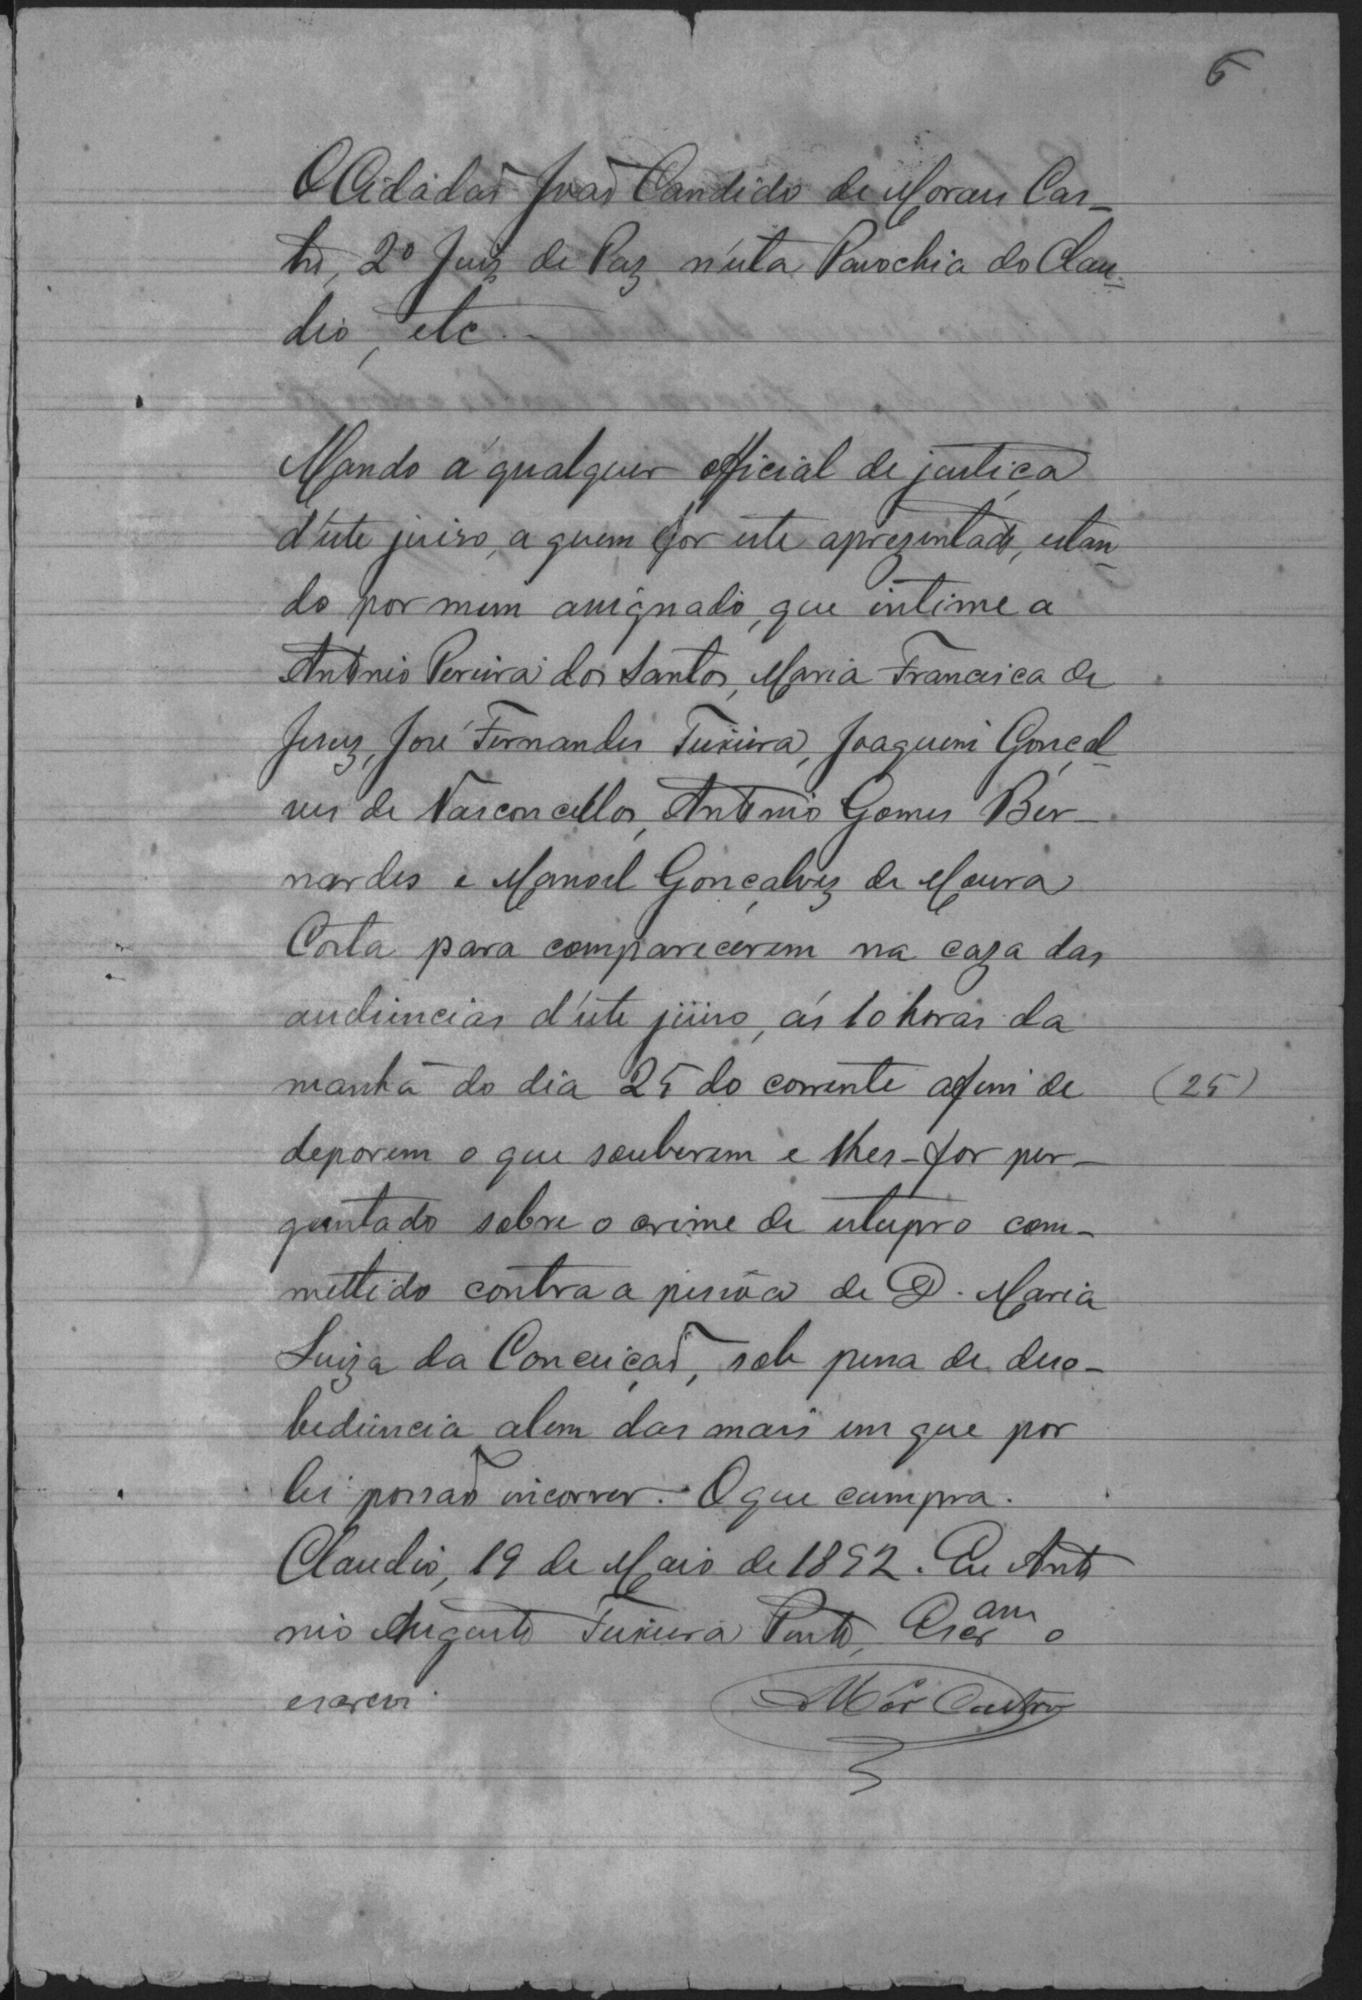 5
O Cidadaõ Joaõ Candido de Moraes Cas-
tro, 2º Juiz de Paz n'esta Parochia do Clau-
dio, etc.
Mando a qualquer official de justiça
d'este juizo, a quem for este aprezentado, estan-
do por mim assignado, que intime a
Antonio Pereira dos Santos, Maria Francisca de
Jesuz, José Fernandes Teixeira, Joaquim Gonçal-
ves de Vasconcellos, Antonio Gomes Ber-
nardes e Manoel Gonçalvez de Moura
Costa para comparecerem na caza das
audiencias d'este juizo, ás 10 horas da
manhã do dia 25 do corrente afim de (25)
deporem o que souberem e lhes-for per-
guntado sobre o crime de estupro com-
mettido contra a pessôa de D. Maria
Luiza da Conceiçaõ, sob pena de deso-
bediencia alem das mais em que por
lei possaõ incorrer. O que cumpra.
Claudio, 19 de Maio de 1892. Eu Anto
nio Augusto Teixeira Pinto, Escr am o
escrevi.
Castro